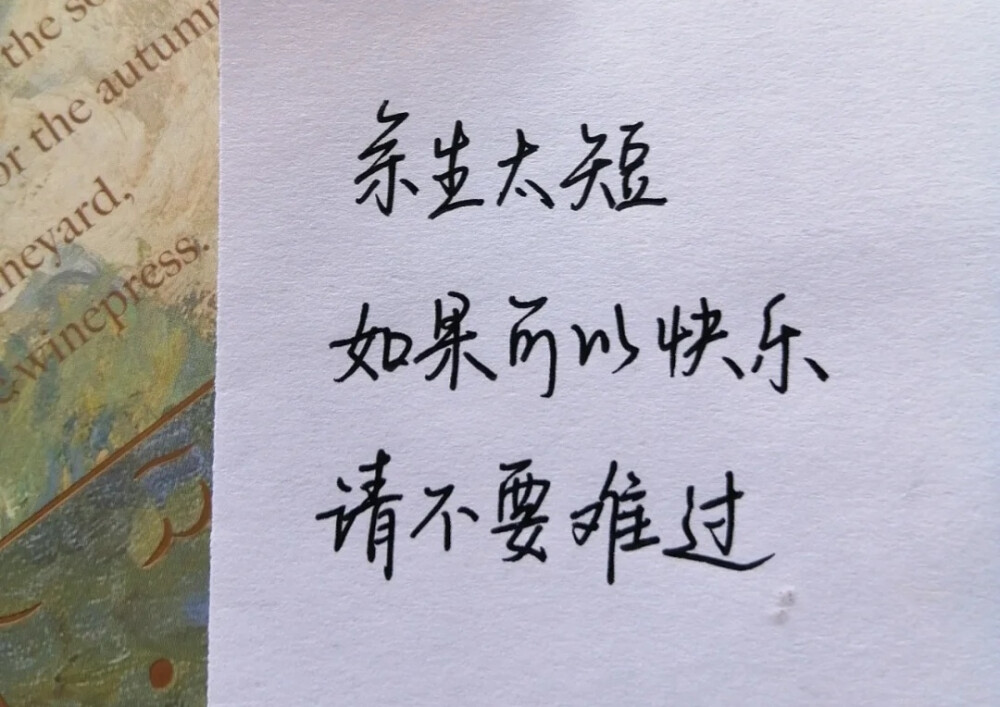 the se
or the autumn
neyard,
winepress.
余生太短
如果可以快乐
请不要难过